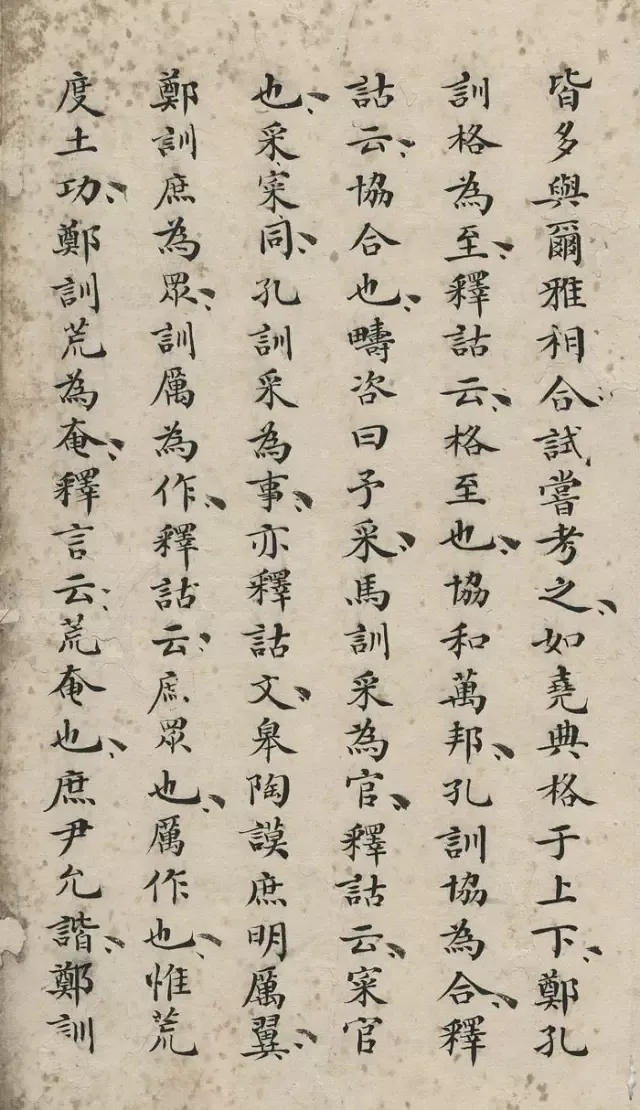 皆多與爾雅相合、試嘗考之、如堯典格于上下、鄭孔
訓格為至、釋詁云、格至也、協和萬邦、孔訓協為合、釋
詁云、協合也、疇咨曰予采、馬訓采為官、釋詁云、寀官
也、采寀同、孔訓采為事、亦釋詁文、皋陶謨庶明厲翼、
鄭訓庶為眾、訓厲為作、釋詁云、庶眾也、厲作也、惟荒
度土功、鄭訓荒為奄、釋言云、荒奄也、庶尹允諧、鄭訓